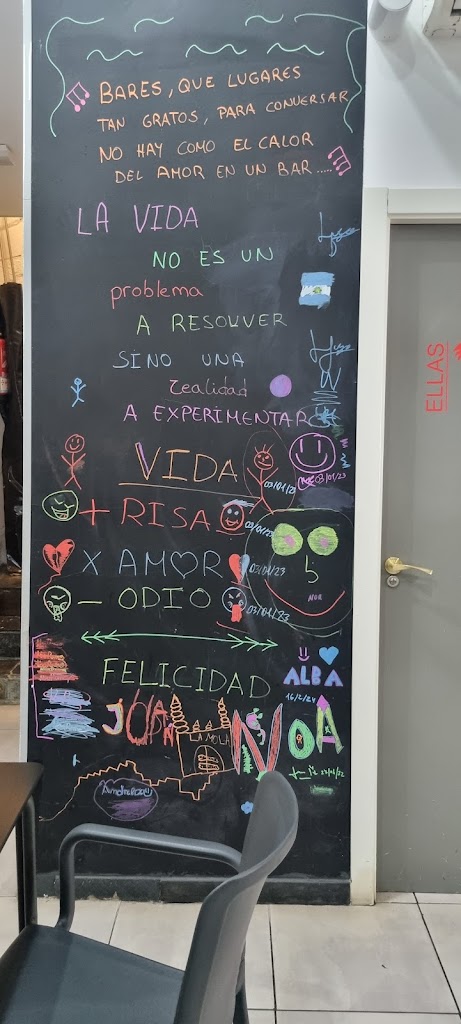 BARES, QUE LUGARES
TAN GRATOS, PARA CONVERSAR
NO HAY COMO EL CALOR
DEL AMOR EN UN BAR.....
LA VIDA
NO ES UN
problema
A RESOLVER
SINO UNA
realidad
A EXPERIMENTAR
ELLAS
VIDA
03/01/23
03/01/23
+ RISA
03/01/23
X AMOR
03/01/23
- ODIO
03/01/23
FELICIDAD
ALBA
16/2/24
JOAN
LA MOLA
NOA